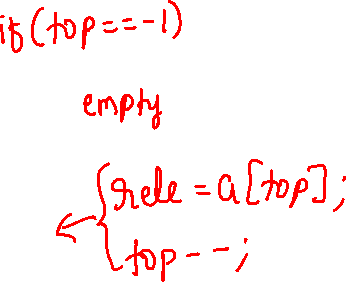 if(top==-1)
empty
rele = a[top];
top--;